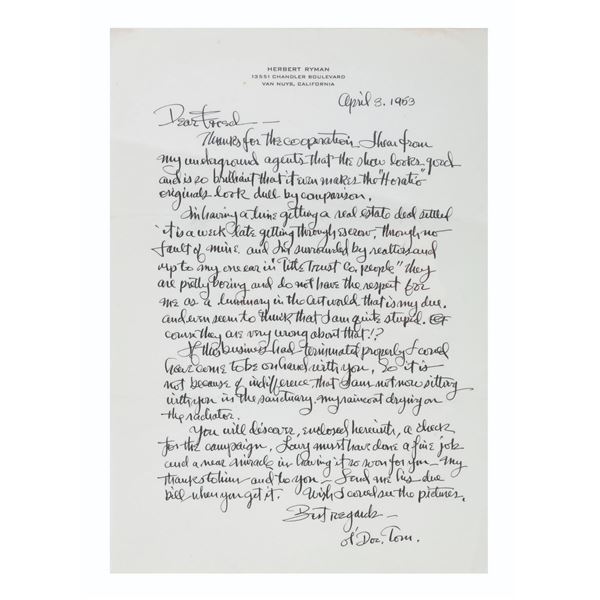 HERBERT RYMAN
13551 CHANDLER BOULEVARD
VAN NUYS, CALIFORNIA
April 3. 1963
Dear
Thanks for the cooperation I hear from
my underground agents that the show looks good
and is so brilliant that it even makes the "Horatio"
originals look dull by comparison.
I'm having a time getting a real estate deal settled
it is a week late getting through escrow, through no
fault of mine and I'm surrounded by realtors and
up to my one ear in "Title Trust Co. people" they
are pretty boring and do not have the respect for
me as a luminary in the art world that is my due.
and even seem to think that I am quite stupid. Of
course they are very wrong about that!?
If this business had terminated properly I could
have come to be on hand with you, so it is
not because of indifference, that I am not now sitting
with you in the sanctuary, my raincoat drying on
the radiator.
You will discover, enclosed herewith, a check
for the campaign, Larry must have done a fine job
and a near miracle in having it so soon for you – my
thanks to him and to you – Send me his due
bill when you get it. Wish I could see the pictures.
Best regards –
ol' Doc. Tom.